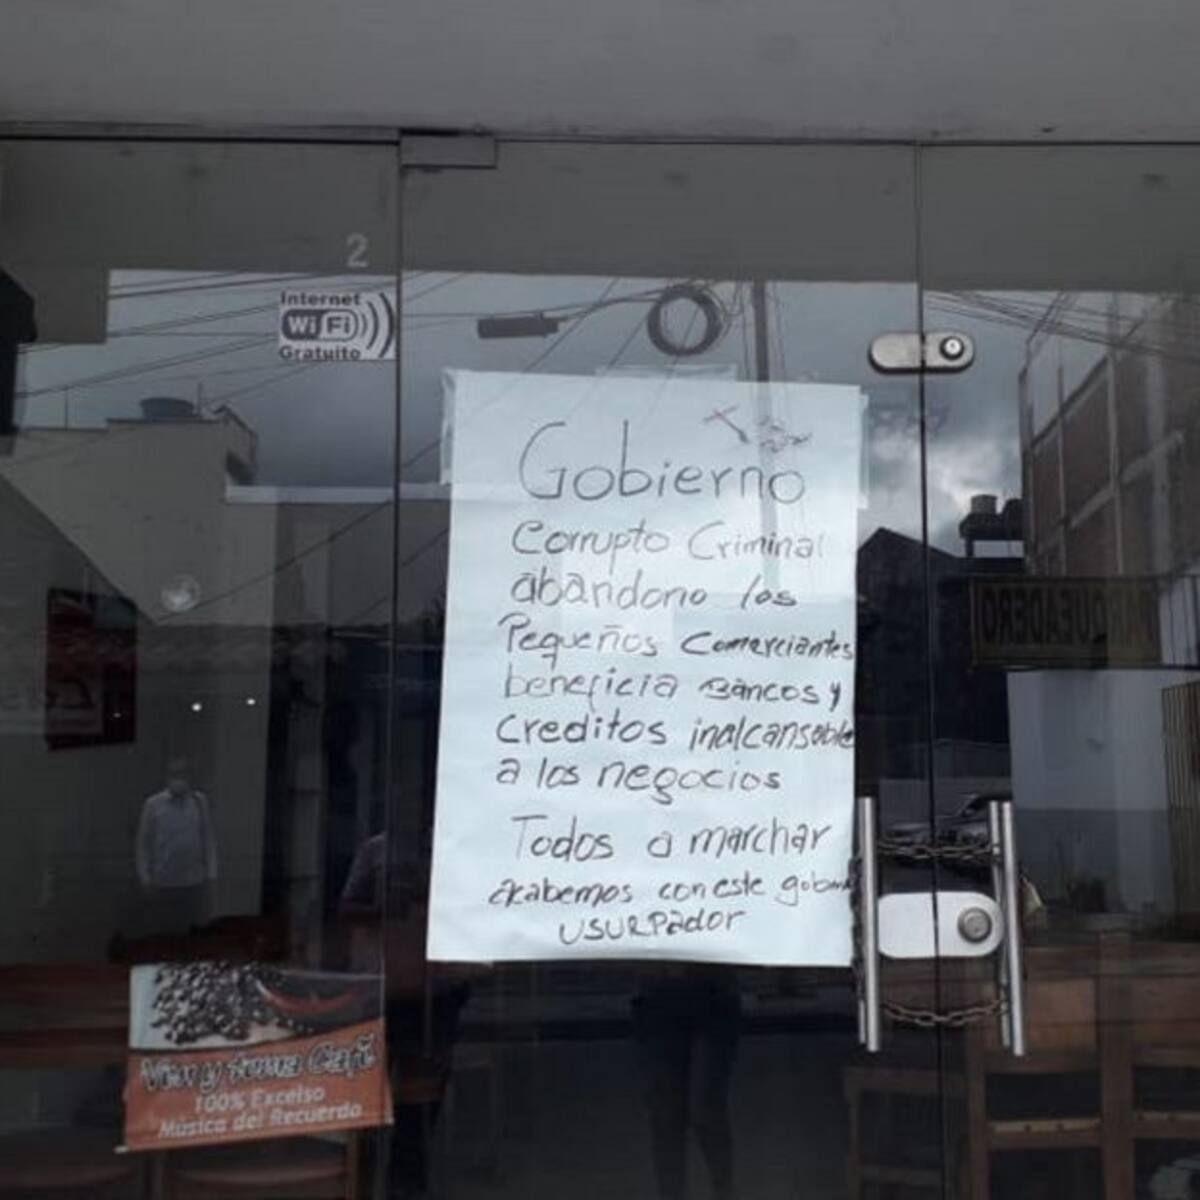 2
Internet
WiFi
Gratuito
Gobierno
Corrupto Criminal
abandono los
Pequeños Comerciantes
beneficia Bancos y
Creditos inalcansable
a los negocios
Todos a marchar
akabemos con este
USURPador
PARQUEADERO
Ven y toma Café
100% Excelso
Música del Recuerdo